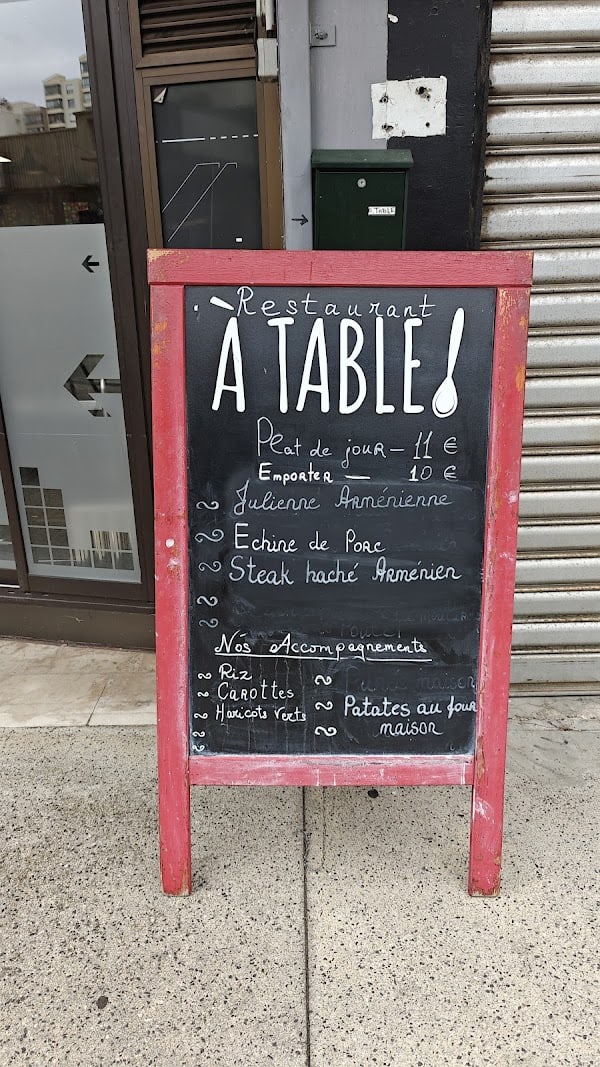 Restaurant
À TABLE!
Plat de jour – 11 €
Emporter — 10 €
Julienne Arménienne
Echine de Porc
Steak haché Arménien
Nos Accompagnements
Riz
Carottes
Haricots Verts
Patates au four
maison